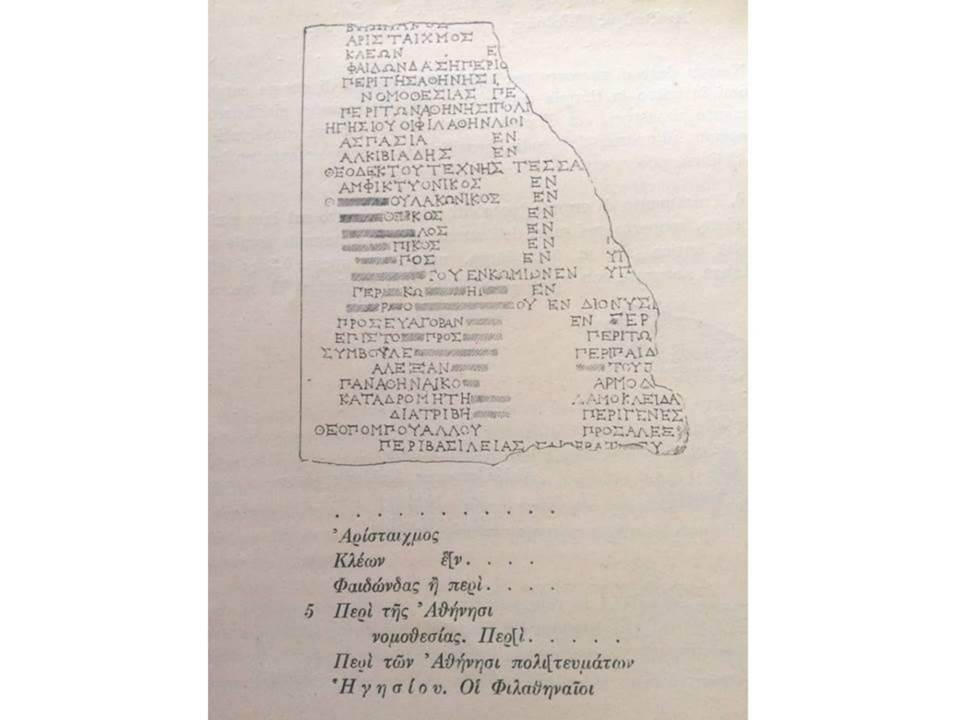 ΑΡΙΣΤΑΙΧΜΟΣ
ΚΛΕΩΝ Ε
ΦΑΙΔΩΝΔΑΣΗΠΕΡΙΟ
ΠΕΡΙΤΗΣΑΘΗΝΗΣΙ
ΝΟΜΟΘΕΣΙΑΣ ΠΕ
ΠΕΡΙΤΩΝΑΘΗΝΗΣΙΠΟΛΙ
ΗΓΗΣΙΟΥΟΙΦΙΛΑΘΗΝΑΙΟΙ
ΑΣΠΑΣΙΑ ΕΝ
ΑΛΚΙΒΙΑΔΗΣ ΕΝ
ΘΕΟΔΕΚΤΟΥΤΕΧΝΗΣ ΤΕΣΣΑ
ΑΜΦΙΚΤΥΟΝΙΚΟΣ ΕΝ
ΟΥΛΑΚΩΝΙΚΟΣ ΕΝ
ΚΟΣ ΕΝ
ΛΟΣ ΕΝ
ΠΙΚΟΣ ΕΝ
ΠΟΣ ΕΝ
ΓΟΥΕΝΚΩΜΙΟΝΕΝ
ΠΕΡ ΚΩ ΗΙ ΕΝ
ΟΥ ΕΝ ΔΙΟΝΥΣ
ΠΡΟΣΕΥΑΓΟΡΑΝ ΕΝ ΠΕΡ
ΕΠΙΣΤΟ ΠΡΟΣ ΠΕΡΙΤΩ
ΣΥΜΒΟΥΛΕ ΠΕΡΙΠΑΙΔ
ΑΛΕΞΑΝ ΤΟΥΣ
ΠΑΝΑΘΗΝΑΙΚΟ ΑΡΜΟΔ
ΚΑΤΑΔΡΟΜΗΤΗ ΛΑΜΟΚΛΕΙΔΑ
ΔΙΑΤΡΙΒΗ ΠΕΡΙΓΕΝΕΣ
ΘΕΟΠΟΜΠΟΥΑΛΛΟΥ ΠΡΟΣΑΛΕΞ
ΠΕΡΙΒΑΣΙΛΕΙΑΣ
. . . . . . . . . . .
Ἀρίσταιχμος
Κλέων ἕ[ν. . . .
Φαιδώνδας ἢ περὶ. . . .
5 Περὶ τῆς Ἀθήνησι
νομοθεσίας. Περ[ὶ. . . . .
Περὶ τῶν Ἀθήνησι πολι[τευμάτων
Ἡγησίου. Οἱ Φιλαθηναῖοι